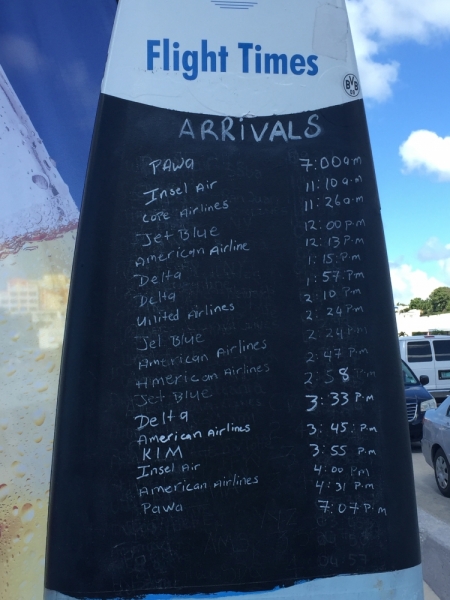 Flight Times
BVB 09
ARRIVALS
PAWA 7:00 a.m
Insel Air 11:10 a.m
COPE Airlines 11:26 a.m
Jet Blue 12:00 p.m
American Airline 12:13 P.m
Delta 1:15 P.m
Delta 1:57 P.m
Uniited Airlines 2:10 P.m
Jel Blue 2:24 P.m
American Airlines 2:24 P.m
American Airlines 2:47 P.m
Jet Blue 2:58 P.m
Delta 3:33 P.m
American Airlines 3:45 P.m
KIM 3:55 P.m
Insel Air 4:00 Pm
American Airlines 4:31 P.m
PaWa 7:07 P.m